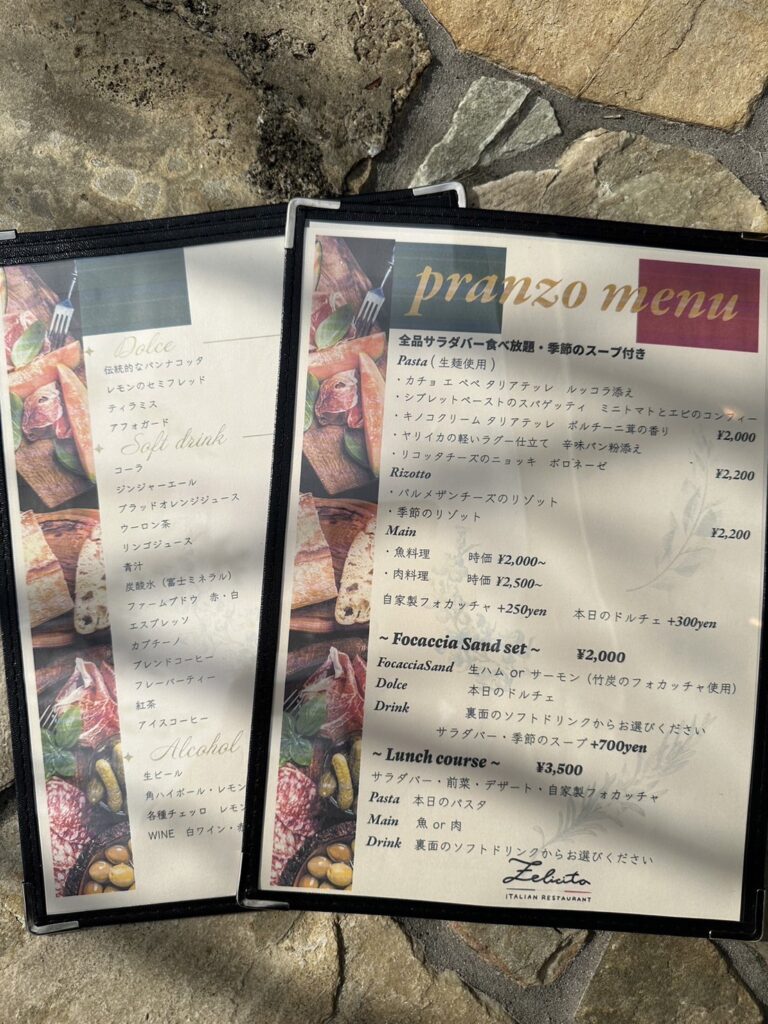 Dolce
伝統的なパンナコッタ
レモンのセミフレッド
ティラミス
アフォガード
Soft drink
コーラ
ジンジャーエール
ブラッドオレンジジュース
ウーロン茶
リンゴジュース
青汁
炭酸水（富士ミネラル）
ファームブドウ　赤・白
エスプレッソ
カプチーノ
ブレンドコーヒー
フレーバーティー
紅茶
アイスコーヒー
Alcohol
生ビール
角ハイボール・レモン
各種チェッロ　レモン
WINE　白ワイン・赤
pranzo menu
全品サラダバー食べ放題・季節のスープ付き
Pasta ( 生麺使用 )
・カチョ エ ペペ タリアテッレ　ルッコラ添え
・シブレットペーストのスパゲッティ　ミニトマトとエビのコンフィー
・キノコクリーム タリアテッレ　ポルチーニ茸の香り　¥2,000
・ヤリイカの軽いラグー仕立て　辛味パン粉添え
・リコッタチーズのニョッキ　ボロネーゼ　¥2,200
Rizotto
・パルメザンチーズのリゾット
・季節のリゾット　¥2,200
Main
・魚料理　時価 ¥2,000~
・肉料理　時価 ¥2,500~
自家製フォカッチャ +250yen　本日のドルチェ +300yen
~ Focaccia Sand set ~　¥2,000
FocacciaSand　生ハム or サーモン（竹炭のフォカッチャ使用）
Dolce　本日のドルチェ
Drink　裏面のソフトドリンクからお選びください
サラダバー・季節のスープ +700yen
~ Lunch course ~　¥3,500
サラダバー・前菜・デザート・自家製フォカッチャ
Pasta　本日のパスタ
Main　魚 or 肉
Drink　裏面のソフトドリンクからお選びください
Felicita
ITALIAN RESTAURANT